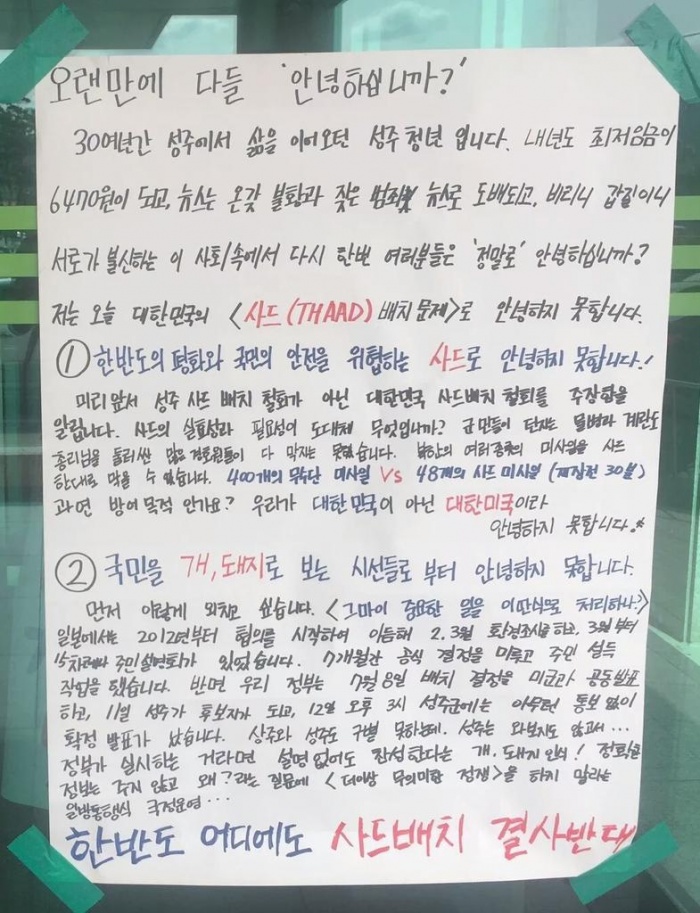 오랜만에 다들 '안녕하십니까?'
30여년간 성주에서 삶을 이어오던 성주청년 입니다. 내년도 최저임금이
6470원이 되고, 뉴스는 온갖 불황과 잦은 범죄 뉴스로 도배되고, 비리니 갑질이니
서로가 불신하는 이 사회속에서 다시 한번 여러분들은 '정말로' 안녕하십니까?
저는 오늘 대한민국의 <사드(THAAD) 배치 문제>로 안녕하지 못합니다.
① 한반도의 평화와 국민의 안전을 위협하는 사드로 안녕하지 못합니다!
미리 앞서 성주 사드 배치 철회가 아닌 대한민국 사드배치 철회를 주장함을
알립니다. 사드의 실효성과 필요성이 도대체 무엇입니까? 군민들이 던지는 물병과 계란도
총리님을 둘러싼 많은 경호원들이 다 막지는 못했습니다. 북한의 여러종류의 미사일을 사드
한대로 막을 수 없습니다. 400개의 무수단 미사일 Vs 48개의 사드 미사일 (재장전 30분)
과연 방어 목적 인가요? 우리가 대한민국이 아닌 대한미국이라
안녕하지 못합니다.
② 국민을 개, 돼지로 보는 시선들로 부터 안녕하지 못합니다.
먼저 이렇게 외치고 싶습니다. <그마이 중요한 일을 이딴식으로 처리하나?>
일본에서는 2012년부터 협의를 시작하여 이듬해 2, 3월 환경조사를 하고, 3월부터
차례나 주민설명회가 있었습니다. 7개월간 공식 결정을 미루고 주민 설득
작업을 했습니다. 반면 우리 정부는 7월 8일 배치 결정을 미군과 공동발표
하고, 11일 성주가 후보지가 되고, 12일 오후 3시 성주군에는 아무런 통보 없이
확정 발표가 났습니다. 상주와 성주도 구별 못하는데. 성주는 와보지도 않고서...
정부가 실시하는 거라면 설명 없어도 찬성한다는 개. 돼지 인식! 정확한
정보는 주지 않고 왜?라는 질문에 <더이상 무의미한 정쟁>을 하지 말라는
일방통행식 국정운영...
한반도 어디에도 사드배치 결사반대